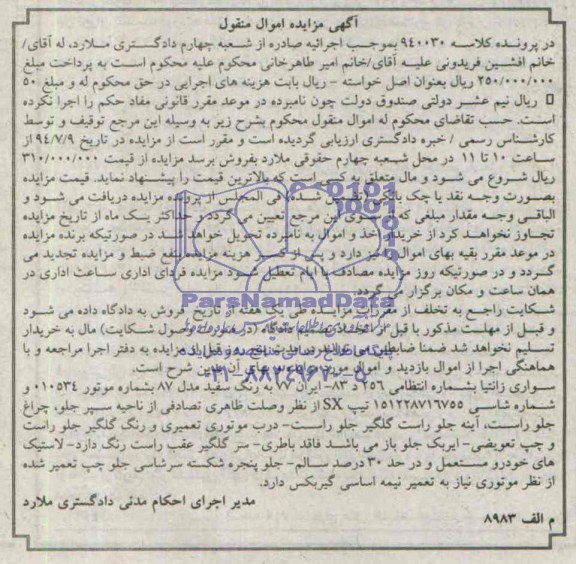 آگهی مزایده اموال منقول
در پرونده کلاسه ۹۴۰۰۳۰ بموجب اجرائیه صادره از شعبه چهارم دادگستری ملارد، له آقای/
خانم افشین فریدونی علیه آقای/خانم امیر طاهرخانی محکوم علیه محکوم است به پرداخت مبلغ
۲۵۰/۰۰۰/۰۰۰ ریال بعنوان اصل خواسته – ریال بابت هزینه های اجرایی در حق محکوم له و مبلغ ۵۰
ریال نیم عشر دولتی صندوق دولت چون نامبرده در موعد مقرر قانونی مفاد حکم را اجرا نکرده
است. حسب تقاضای محکوم له اموال منقول محکوم بشرح زیر به وسیله این مرجع توقیف و توسط
کارشناس رسمی / خبره دادگستری ارزیابی گردیده است و مقرر است از مزایده در تاریخ ۹۴/۷/۹ از
ساعت ۱۰ تا ۱۱ در محل شعبه چهارم حقوقی ملارد بفروش برسد مزایده از قیمت ۳۱۰/۰۰۰/۰۰۰
ریال شروع می شود و مال متعلق به کسی است که بالاترین قیمت را پیشنهاد نماید. قیمت مزایده
بصورت وجه نقد یا چک بانکی تضمین شده، فی المجلس از برنده مزایده دریافت می شود و
الباقی وجه مقدار مبلغی که از سوی این مرجع تعیین می گردد و حداکثر یک ماه از تاریخ مزایده
تجاوز نخواهد کرد از خریدار اخذ و اموال به نامبرده تحویل خواهد شد در صورتیکه برنده مزایده
در موعد مقرر بقیه بهای اموال را نپردازد و پس از کسر هزینه مزایده بنفع ضبط و مزایده تجدید می
گردد و در صورتیکه روز مزایده مصادف با ایام تعطیل شود مزایده فردای اداری ساعت اداری در
همان ساعت و مکان برگزار می گردد.
شکایت راجع به تخلف از مقررات مزایده طی یک هفته از تاریخ فروش به دادگاه داده می شود
و قبل از مهلت مذکور یا قبل از اتخاذ تصمیم دادگاه (در صورت وصول شکایت) مال به خریدار
تسلیم نخواهد شد ضمنا طالبین می توانند قبل از مزایده به دفتر اجرا مراجعه و با
هماهنگی اجرا از اموال بازدید و اموال مورد مزایده و بهای آن بدین شرح است.
سواری زانتیا بشماره انتظامی ۲۵۶ د ۸۳- ایران ۷۷ به رنگ سفید مدل ۸۷ بشماره موتور ۰۱۰۵۳۴ و
شماره شاسی ۱۵۱۲۲۸۷۱۶۷۵۵ تیپ SX از نظر وصلت ظاهری تصادفی از ناحیه سپر جلو، چراغ
جلو راست، آینه جلو راست گلگیر جلو راست- درب موتوری تعمیری و رنگ گلگیر جلو راست
و چپ تعویضی- ایربک جلو باز می باشد فاقد باطری- سر گلگیر عقب راست رنگ دارد- لاستیک
های خودرو مستعمل و در حد ۳۰ درصد سالم- جلو پنجره شکسته سرشاسی جلو چپ تعمیر شده
از نظر موتوری نیاز به تعمیر نیمه اساسی گیربکس دارد.
مدیر اجرای احکام مدنی دادگستری ملارد
م الف ۸۹۸۳
ParsNamadData
۰۲۱-۸۸۳۴۹۶۷۰-۵